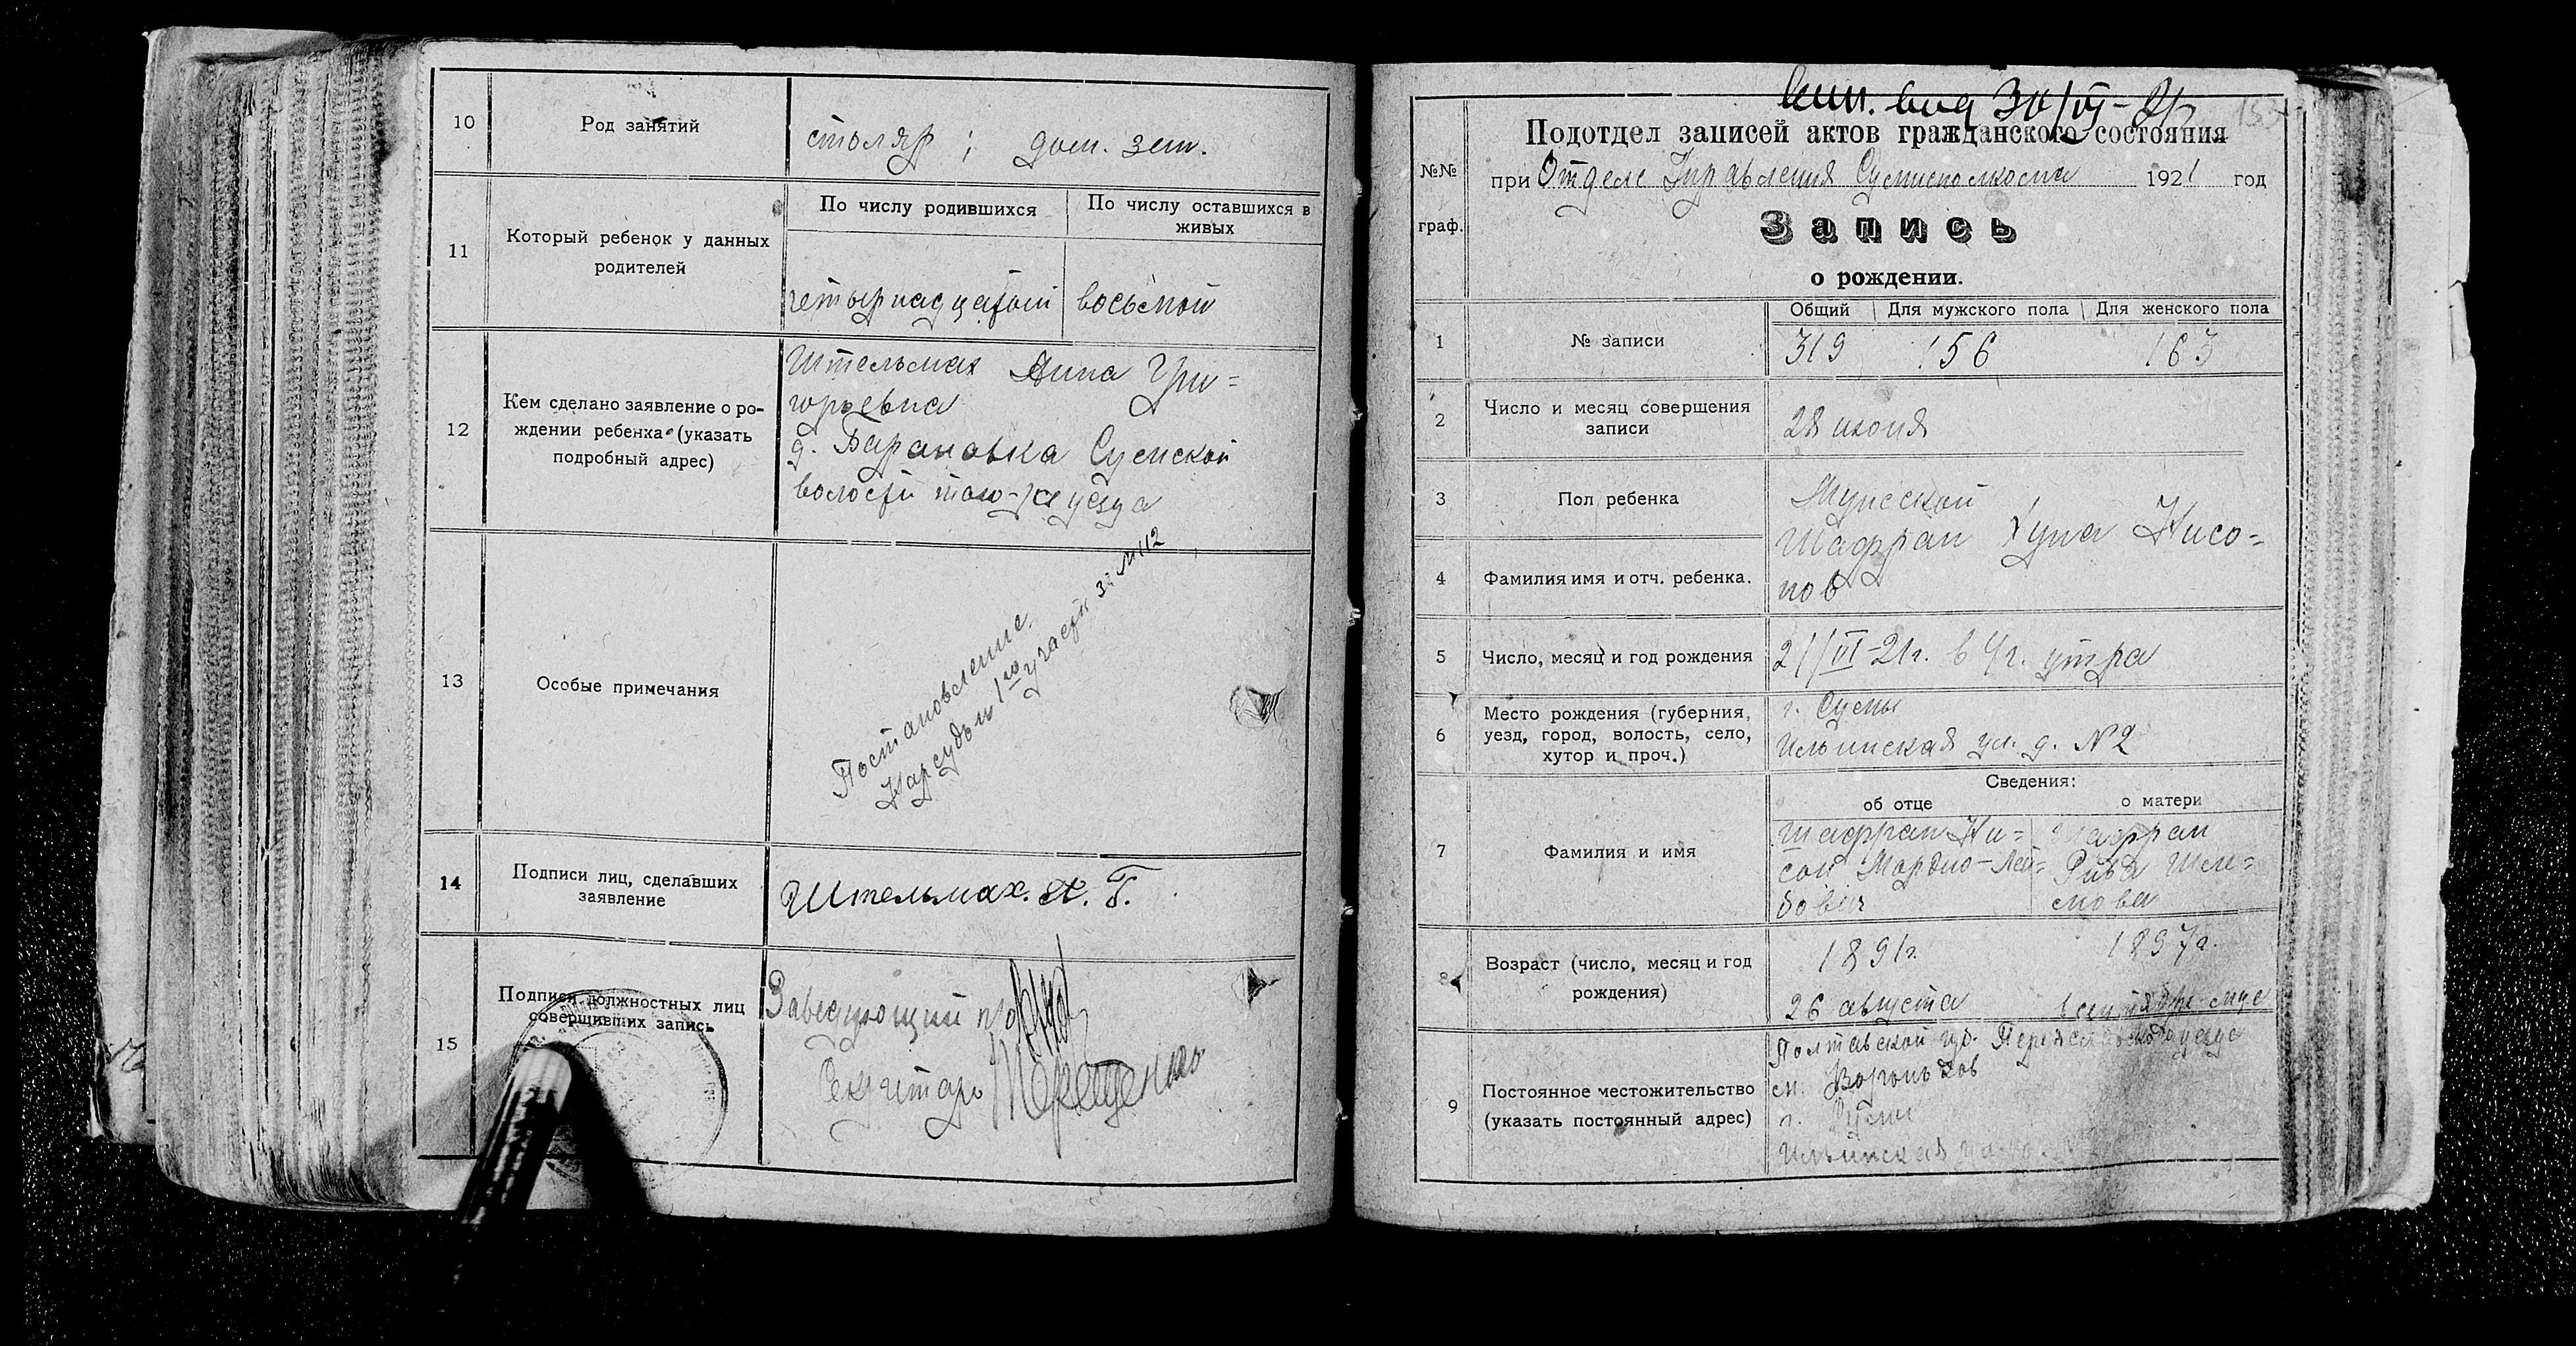 10
Род занятий
столяр ; дом. зан.
11
Который ребенок у данных
родителей
По числу родившихся
По числу оставшихся в
живых
четырнадцатый
восьмой
12
Кем сделано заявление о ро-
ждении ребенка (указать
подробный адрес)
Штельмах Анна Гри=
горьевна
д. Барановка Сумской
волости того-же уезда
13
Особые примечания
Постановление
Нарсудом 1го участи за № 112
14
Подписи лиц, сделавших
заявление
Штельмах. А. Г.
15
Подписи должностных лиц
совершивших запись
Заведующий п/о
Секретарь Терещенко
вид 30/VI-21
Подотдел записей актов гражданского состояния
№№
граф.
при Отделе Управления Сумисполкома 1921 год
Запись
о рождении.
1
№ записи
Общий
Для мужского пола
Для женского пола
319
156
163
2
Число и месяц совершения
записи
28 июня
3
Пол ребенка
Мужской
4
Фамилия имя и отч. ребенка.
Шафран Хуна Нисо=
нов
5
Число, месяц и год рождения
21/VI-21г. в 4ч. утра
6
Место рождения (губерния,
уезд, город, волость, село,
хутор и проч.)
г. Сумы
Ильинская ул. д. №2
7
Фамилия и имя
Сведения:
об отце
о матери
Шафран Ни=
сон Мордко-Лей=
бович
Шафран
Рива Шле=
мова
8
Возраст (число, месяц и год
рождения)
1891г.
26 августа
1897г.
в сентябре м-це
9
Постоянное местожительство
(указать постоянный адрес)
Полтавской губ. Переяславского уезда
м. Вороньков
г. Сумы
Ильинская ул.